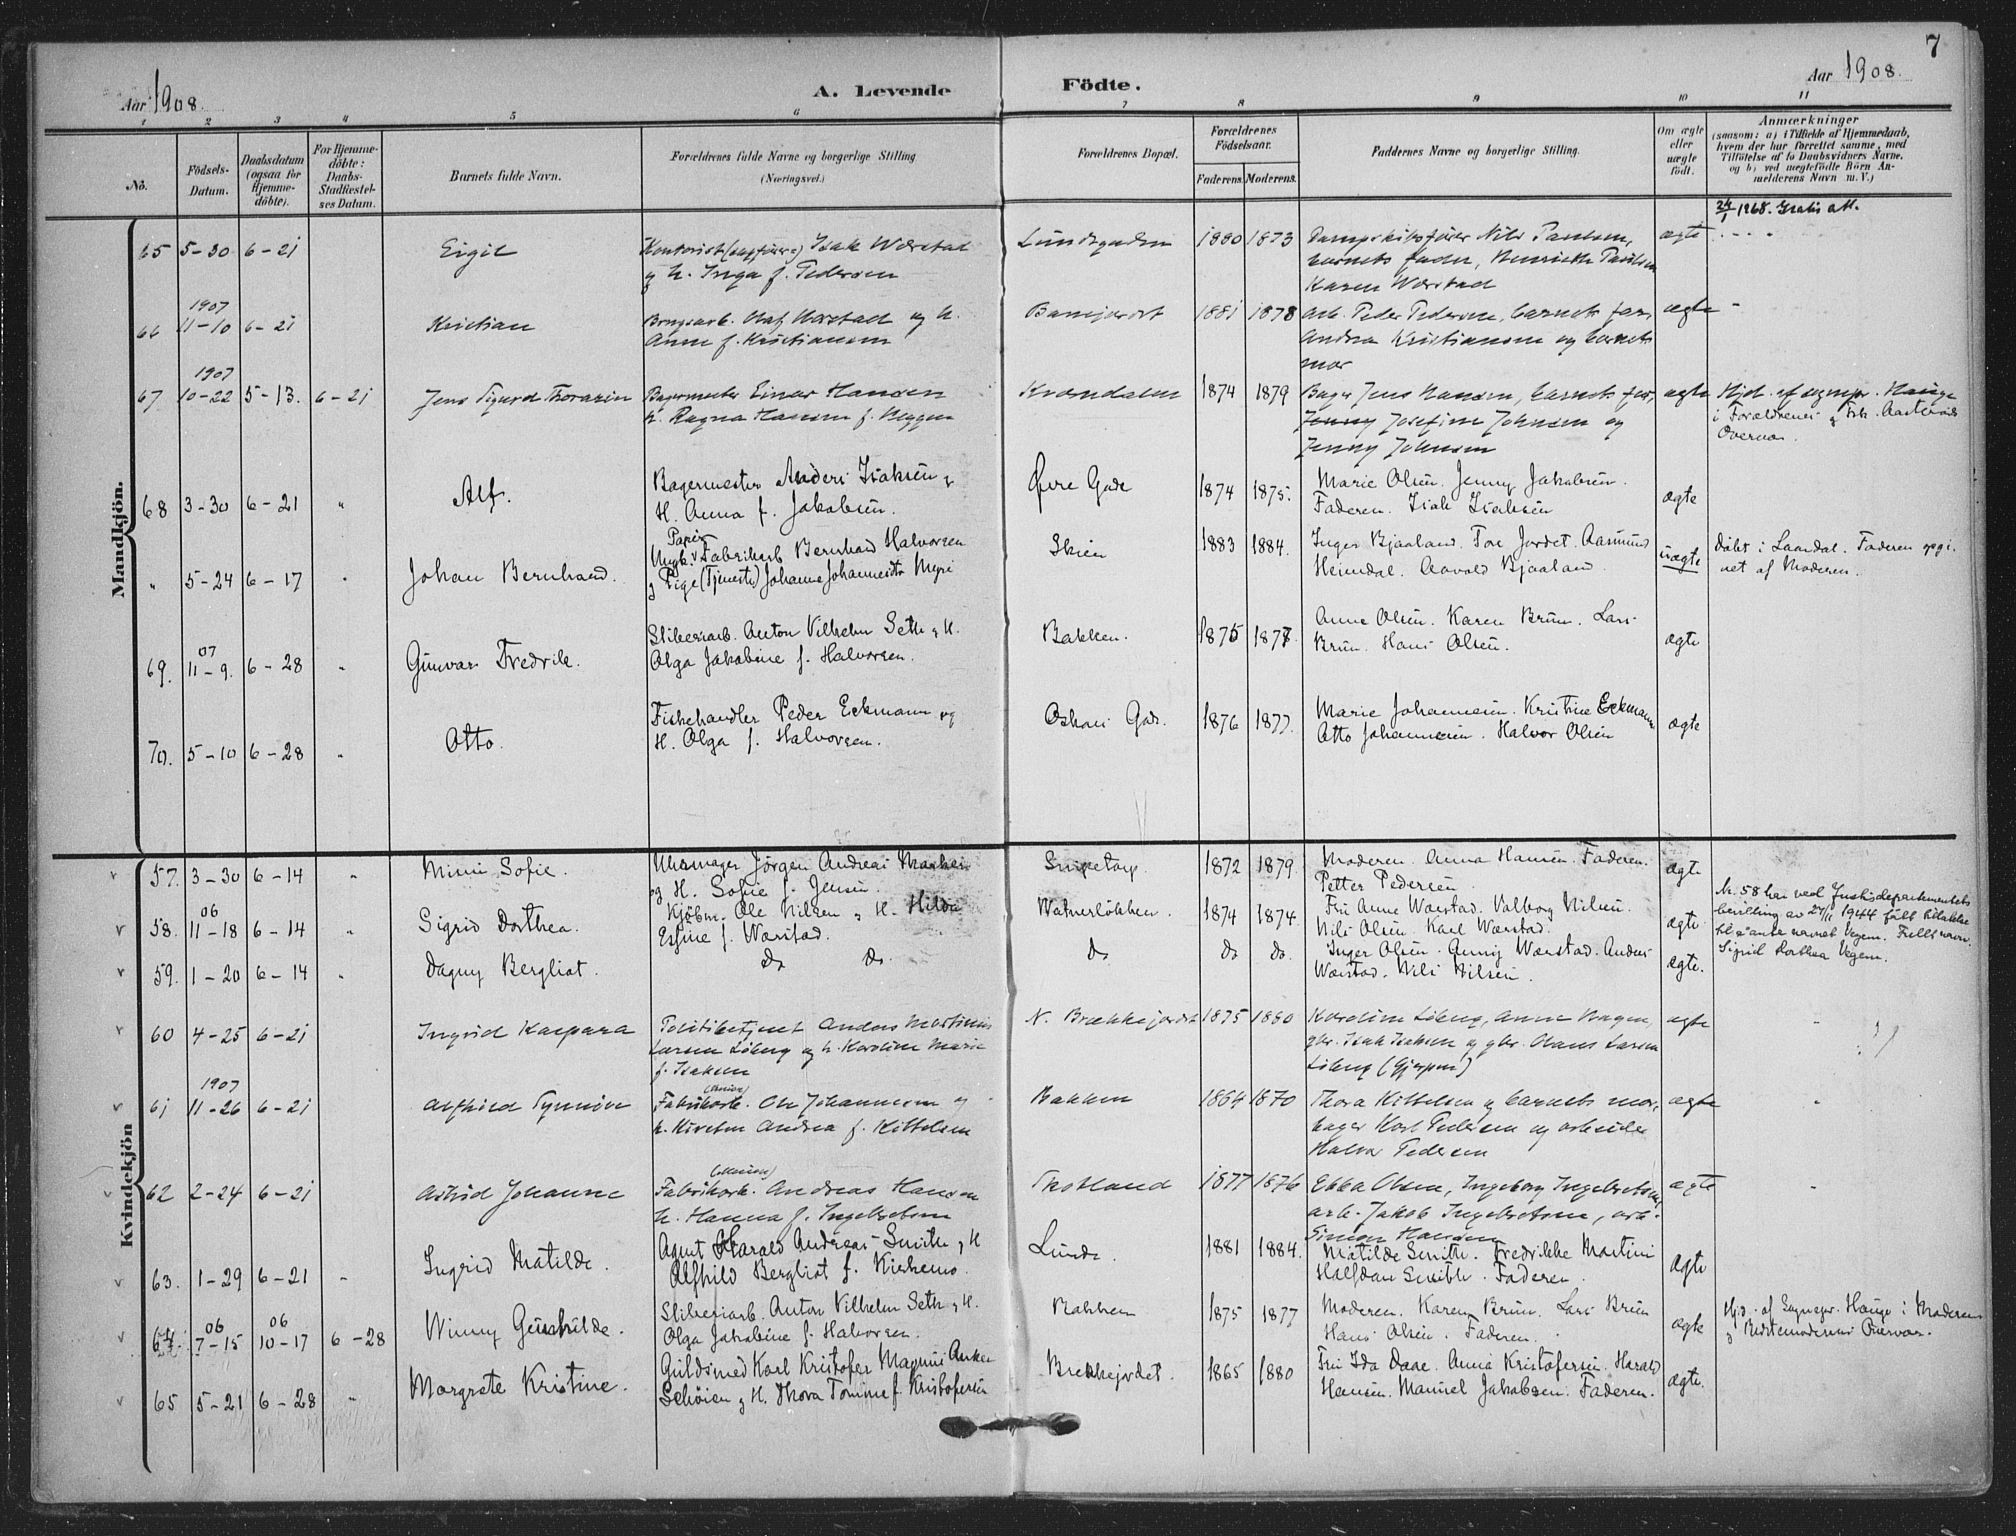 7
Aar 1908.
A. Levende
Födte.
Aar 1908.
1 2 3 4 5 6 7 8 9 10 11
No.
Födsels-Datum.
Daabsdatum (ogsaa for Hjemme-döbte).
For Hjemme-döbte: Daabs-Stadfæstel-ses Datum.
Barnets fulde Navn.
Forældrenes fulde Navne og borgerlige Stilling
(Næringsvei.)
Forældrenes Bopæl.
Forældrenes Födselsaar.
Faderens. Moderens.
Faddernes Navne og borgerlige Stilling.
Om ægte eller uægte födt.
Anmærkninger
(saasom: a) i Tilfælde af Hjemmedaab,
hvem der har forrettet samme, med
Tilföielse af to Daabsvidners Navne.
og b) ved uægtefödte Börn An-
melderens Navn m. V.)
Mandkjön.
24/1 1968. Gratis att.
65 5-30 6-21 Eigil Kontorist Isak Wærstad Lundegaden 1880 1873 Dampskibsfører Nils Paulsen, ægte
og h. Inga f. Pedersen barnets fader, Henriette Paulsen
Karen Wærstad
1907
66 11-10 6-21 Kristian Brugsarb. Olaf Wærstad og h. 1881 1878 Arb. Peder Pedersen, barnets far, ægte
Anne f. Kristiansen Andrea Kristiansen og barnets
mor
1907
67 10-22 5-13. 6-21 Jens Sigurd Thorazin Bagermester Einar Hansen 1874 1879 Bager Jens Hansen, barnets far, ægte Hjd. af sognepr. Hauge
h. Ragna Hansen f. Jenny Josefine Johnsen og i Forældrenes
Jenny Johnsen Overvær.
68 3-30 6-21 " Alf. Bagermester Anders Isaksen & Øvre Gade 1874 1875. Marie Olsen. Jenny Jakobsen. ægte
H. Anna f. Jakobsen. Faderen. Isak Isaksen
" 5-24 6-17 " Johan Bernhard. Papir Fabrikarb Bernhard Halvorsen Skien 1883 1884. Inger Bjaaland. Tore Jordet. Aasmund uægte Døbt i Laardal. Faderen opgi-
& Pige (Tjeneste) Johanne Johannesdtr Myri Heimdal. Aavald Bjaaland. vet af Moderen.
07
69. 11-9. 6-28 " Gunvar Fredrik. Sliberiarb. Anton Vilhelm Seth & H. Bakken. 1875 1877. Anne Olsen. Karen Brun. Lars ægte
Olga Jakobine f. Halvorsen. Brun. Hans Olsen.
70. 5-10 6-28 " Otto. Fiskehandler Peder Eckmann og Oskars Gad. 1876 1877. Marie Johannesen. Kristine Eckmann ægte
H. Olga f. Halvorsen. Otto Johannesen. Halvor Olsen
Kvindekjön
57. 3-30 6-14 " Mimi Sofie. Uhrmager Jörgen Andreas Snipetorp 1872 1879. Moderen. Anna Hansen. Faderen. ægte
og H. Sofie f. Jensen. Petter Pedersen
06
58. 11-18 6-14 " Sigrid Dorthea. Kjöbm. Ole Nilsen & H. Hilda 1874 1874 Fru Anne Wærstad. Valborg Nilsen. ægte
Esfine f. Wærstad. Nils Olsen. Karl Wærstad.
Nr. 58 har ved Justisdepartementets
bevilling av 24/11 1944 fått tillatelse
til å anta navnet Vegem. Fullt navn.
Sigrid Dorthea Vegem.
59. 1-20 6-14 " Dagny Bergliot. do do. do do do. Inger Olsen. Anny Wærstad. Anders ægte.
Wærstad. Nils Nilsen.
60 4-25 6-21 Ingrid Kaspara Politibetjent Anders Martinius N. Brækkejordet 1875 1880 Karoline Löberg, Anne Hagen, ægte
Larsen Löberg og h. Karoline Marie gbr. Isak Isaksen og gbr. Claus Larsen
f. Isaksen Löberg (Gjerpen)
1907
61 11-26 6-21 Alfhild Synnöve Fabrikarb. Ole Johannesen og Bakken 1864 1870 Thora Kittelsen og barnets mor, ægte
h. Andrea f. Kittelsen bager Karl Pedersen og arbeider
Halvor Pedersen
62 2-24 6-21 Astrid Johanne Fabrikarb. Andreas Hansen Skotland 1877 1876 Ebba Olsen, Ingeborg Ingebretsen, ægte
h. Hanna f. Ingebretsen arb. Jakob Ingebretsen, arb.
Simon Hansen
63. 1-29 6-21 " Ingrid Matilde. Agent Harald Andreas Smith & H Lunde 1881 1884. Matilde Smith. Fredrikke Martini ægte
Alfhild Bergliot f. Kirkemo. Halfdan Smith. Faderen.
06 06
64 7-15 10-17 6-28 Winny Gunhilde. Sliberiarb. Anton Vilhelm Seth & H. Bakken 1875 1877 Moderen. Karen Brun. Lars Brun ægte Hjd. af Sognepr. Hauge i Moderens
Olga Jakobine f. Halvorsen. Hans Olsen. Faderen. & Bedstemoderens Overvær.
65 5-21 6-28 " Margrete Kristine. Guldsmed Karl Kristofer Magnus Anker Brekkejordet. 1865 1880 Fru Ida Daae. Anna Kristofersen. Harald ægte.
Schöien & H. Thora Tomine f. Kristofersen Hansen. Manuel Jakobsen. Faderen.